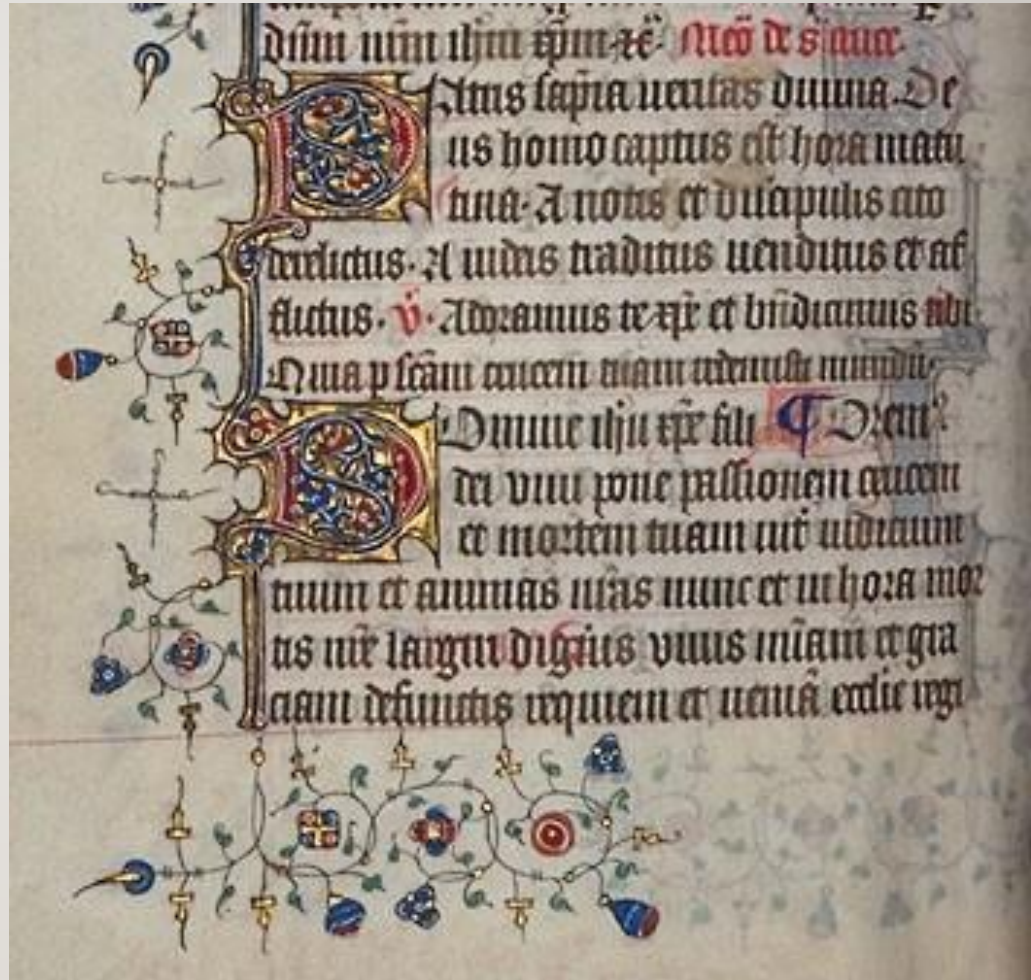 dn̄m nr̄m ih̄m xp̄m ⁊c̄. Meō de s. cruce.
Patris sapīa ueritas diuina. De
us homo captus est hora matu
tina. A notis et discipulis cito
derelictus. A iudeis traditus uenditus et af
flictus. v̄. Adoramus te xp̄e et bn̄dicimus tibi.
Quia p scām crucem tuam redemisti mundū.
Domine ih̄u xp̄e fili ¶ Orem᷒
dei viui pone passionem crucem
et mortem tuam int̄ iudicium
tuum et animas nr̄as nunc et in hora mor
tis nr̄e largiri digneris viuis mīam et gra
ciam defunctis requiem et ueniā ecclie regi